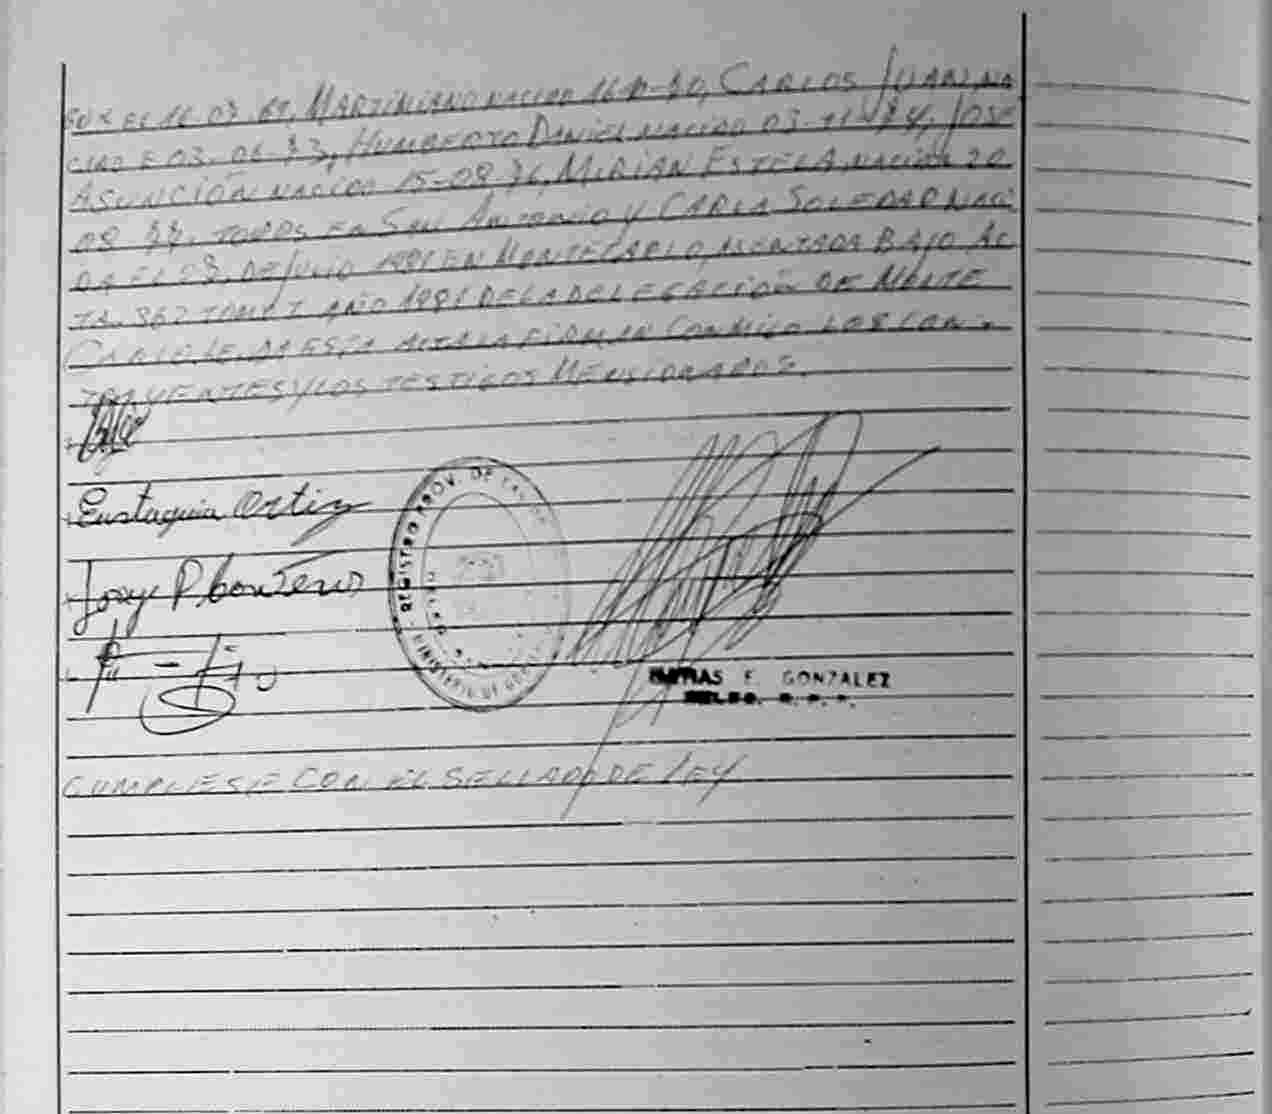 EL 16.03.69, MARTINIANO NACIDO 16-11-70, CARLOS JUAN, NA
CIDO E 03.06-73, HUMBERTO DANIEL NACIDO 03-11-74, JOSE
ASUNCIÓN NACIDO 15-08-76, MIRIAN ESTELA, NACIDA 20
08 77. TODOS EN SAN ANTONIO Y CARLA SOLEDAD NACI
DA EL 28. DE JULIO 1981 EN MONTECARLO, ASENTADA BAJO AC
TA. 367 TOMO I AÑO 1981 DE LA DELEGACIÓN DE MONTE
CARLO. LEIDA ESTA ACTA LA FIRMAN CONMIGO LOS CON.
TRAYENTES Y LOS TESTIGOS MENSIONADOS.
Eustaquia Ortiz
Jorge P
REGISTRO PROV. DE LAS
MINISTERIO DE
MATIAS F. GONZALEZ
CUMPLESE CON EL SELLADO DE LEY